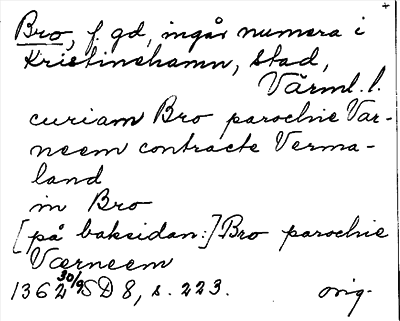 +
Bro, f. gd, ingår numera i
Kristinehamn, stad,
Värml. l.
curiam Bro parochie Vær-
neem contracte Verma-
land
in Bro
[på baksidan:] Bro parochie
Værneem
1362 30/9 SD 8, s. 223. orig.